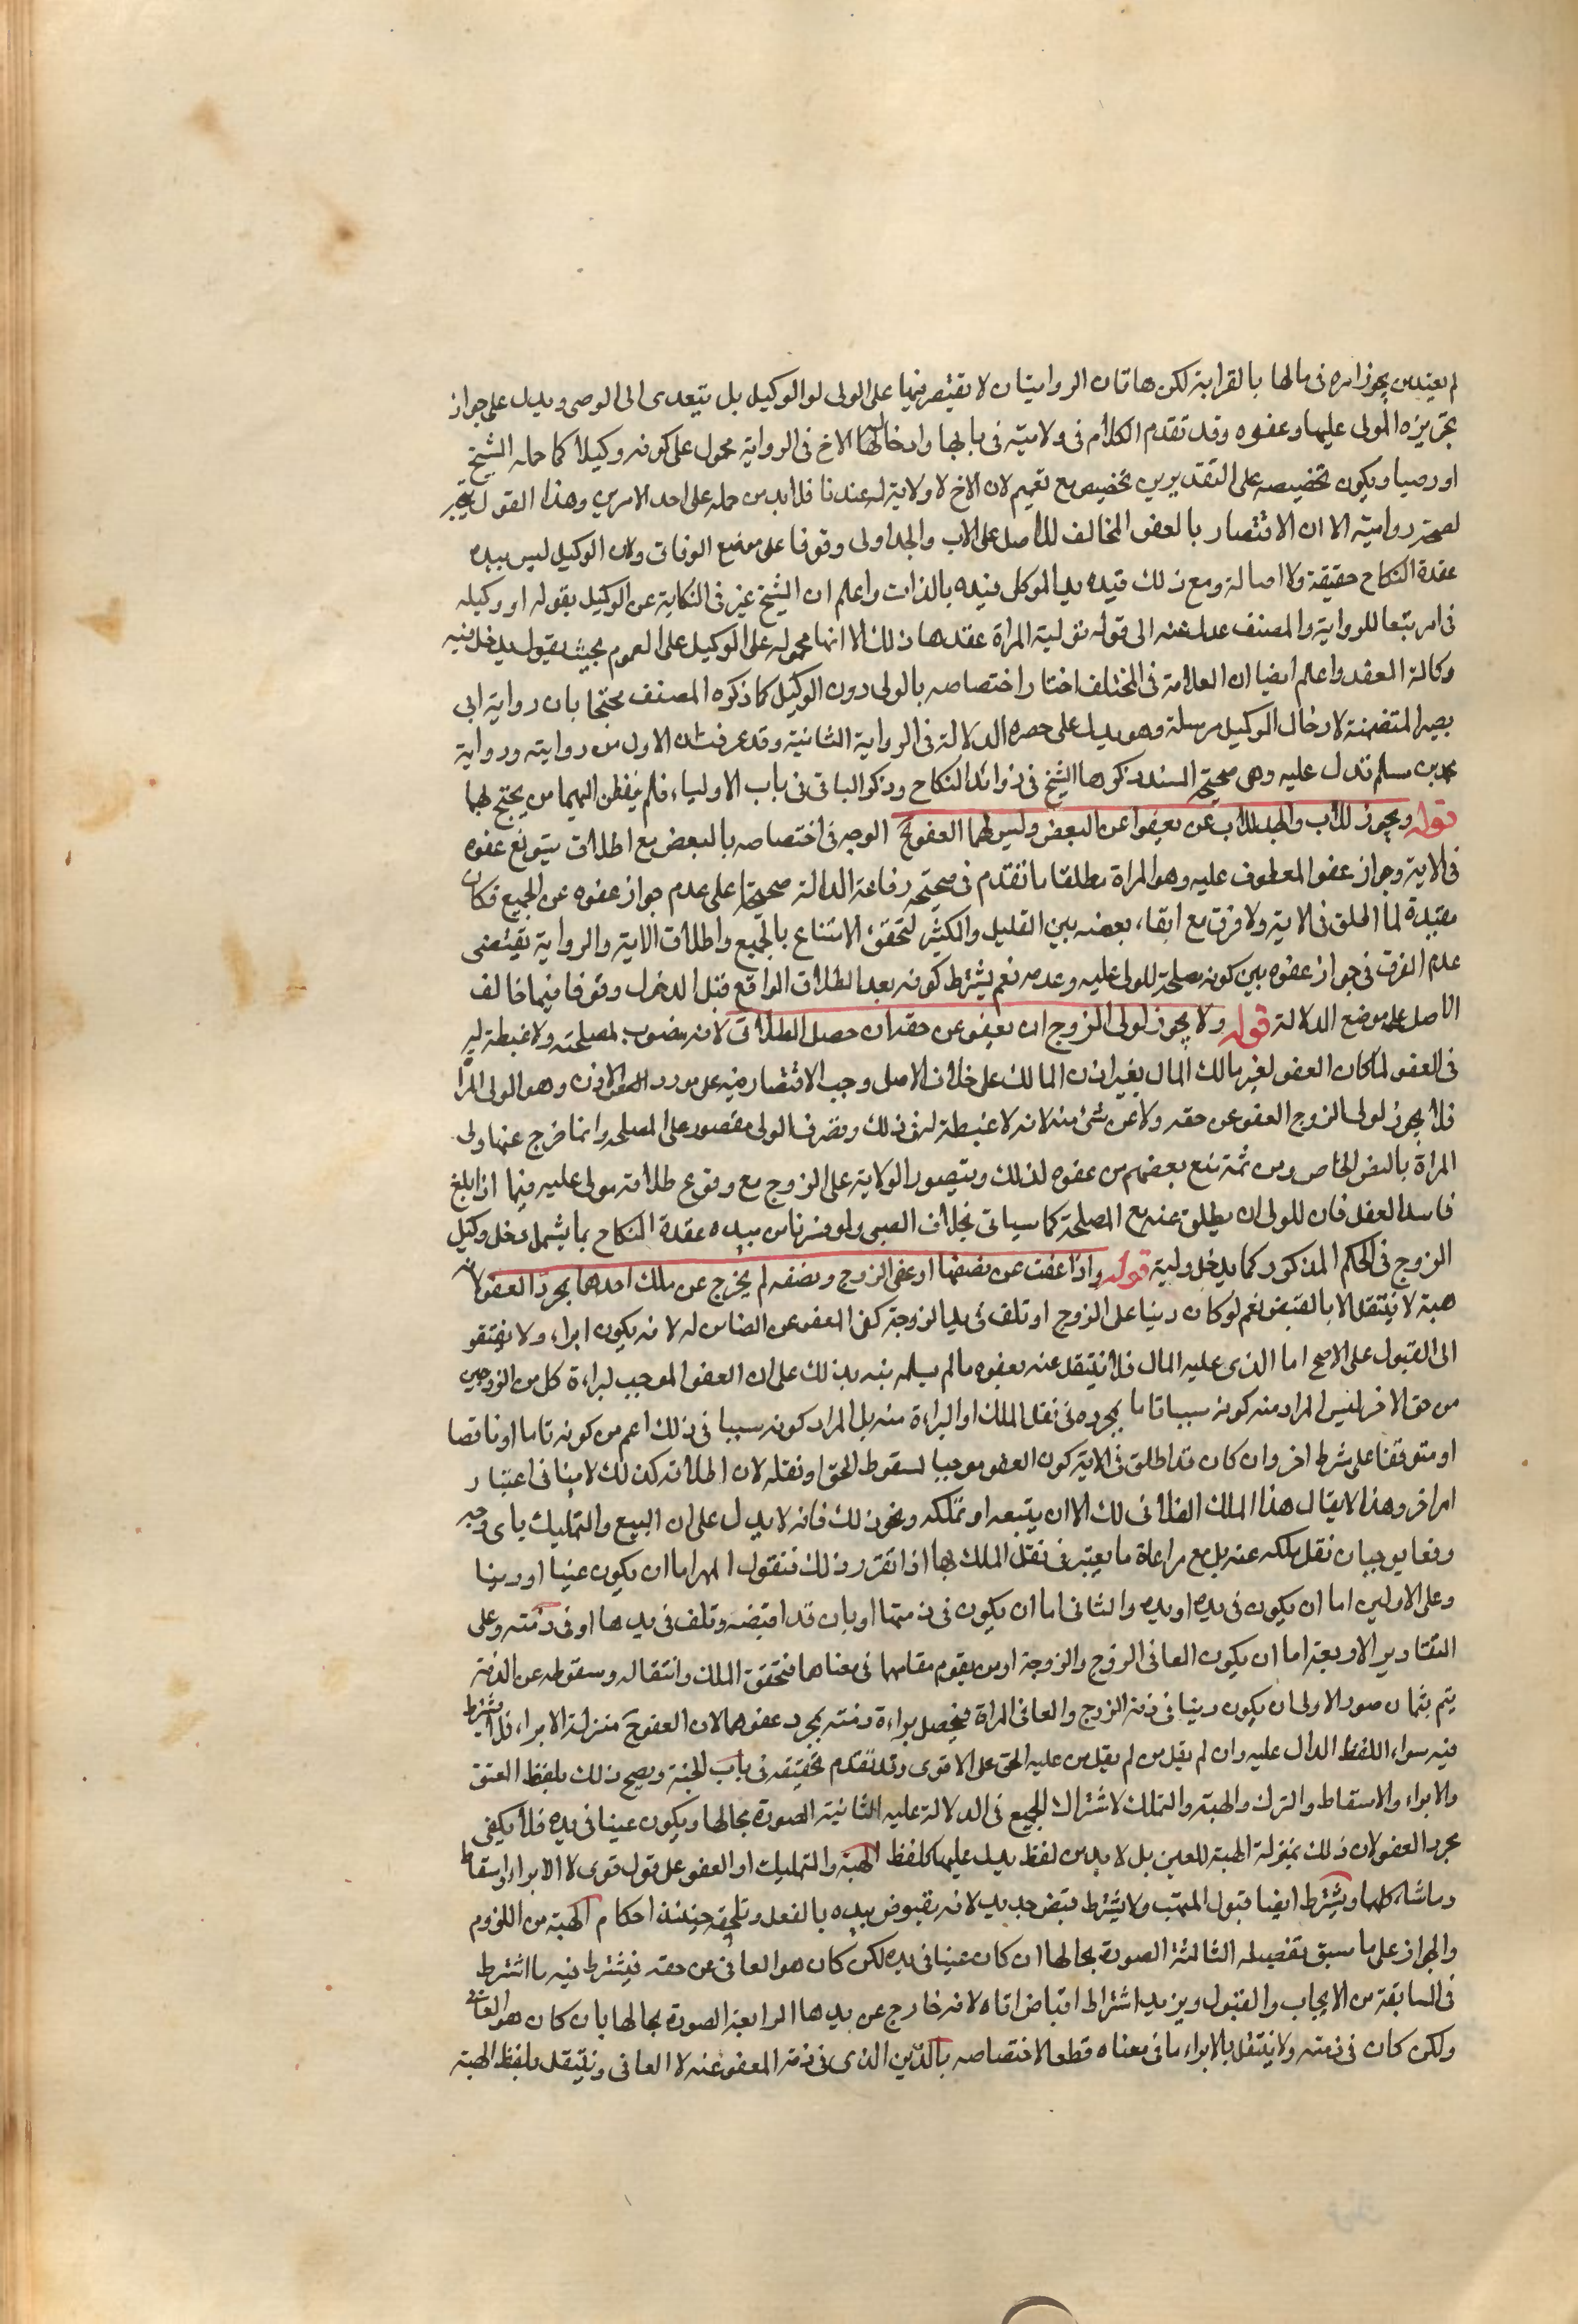 لم يعتد من يجوز امره فى مالها بالقرابة لكن هاتان الروايتان لا يقتصر فيهما على الولى لو الوكيل بل يتعدى الى الوصى ويدل على جواز
تجويزه المولى عليها وعفوه وقد تقدم الكلام فى ولايته فى بابها وادخالها الاخ فى الرواية محمول على كونه وكيلا كما حمله الشيخ
او وصيا ويكون تخصيصه على التقديرين تخصيص مع تعميم لان الاخ لا ولاية له عندنا فلابد من حمله على احد الامرين وهذا القول
لصحة روايته الا ان الاقتصار بالعفو المخالف للاصل على الاب والجد اولى وقوفا على موضع الوفاق ولان الوكيل ليس بيده
عقدة النكاح حقيقة ولا اصالة ومع ذلك قيده يد الموكل فيده بالذات واعلم ان الشيخ عبر فى النكاية عن الوكيل بقوله او وكيله
فى امر تبعا للرواية والمصنف عدل عنه الى قوله توليه المراة عقدها ذلك لا انها محموله على الوكيل على العموم بحيث يقول يدخل فيه
وكالة العقد واعلم ايضا ان العلامة فى المختلف اختار اختصاصه بالولى دون الوكيل كما ذكره المصنف محتجا بان رواية ابى
بصير المتضمنة لادخال الوكيل مرسلة وهو يدل على حصره الدلالة فى الرواية الثانية وقد عرفت ان الاول من روايته ورواية
محمد بن مسلم تدل عليه وهى صحيحة السند ذكرها الشيخ فى زوائد النكاح وذكر الباقى فى باب الاولياء فلم يتفطن اليهما من يحتج لهما
قوله ويجوز للاب والجد للاب عن يعفوا عن البعض وليس لهما العفو عن الوجه فى اختصاصه بالبعض مع اطلاق تسويغ عفوه
فى الاية وجواز عفو المعطوف عليه وهو المراة مطلقا ما تقدم فى صحيحة رفاعة الدالة صحيحا على عدم جواز عفوه عن الجميع فكان
مقيدة لما اطلق فى الاية ولا فرق مع ابقاء بعضه بين القليل والكثير لتحقق الامتناع بالجميع واطلاق الاية والرواية يقتضى
عدم الفرق فى جواز عفوه بين كونه مصلحة للمولى عليه وعدمه نعم يشترط كونه بعد الطلاق الواقع قبل الدخول وقوفا فيما خالف
الاصل على موضع الدلالة قوله ولا يجوز لولى الزوج ان يعفو عن حقه ان حصل الطلاق لانه منصوب لمصلحته ولا غبطة له
فى العفو لما كان العفو لغير مالك المال بغير اذن المالك على خلاف الاصل وجب الاقتصار فيه على مورد الاذن وهو الولى المراة
فلا يجوز لولى الزوج العفو عن حقه ولا عن شئ منه لانه لا غبطة له فى ذلك وتصرف الولى مقصور على المصلحه وانما خرج عنها ولى
المراة بالنص الخاص ومن ثمة منع بعضهم من عفوه لذلك ويتصور الولاية على الزوج مع وقوع طلاقه مولى عليه فيما اذا بلغ
فاسد العقل فان للولى ان يطلق عنه مع المصلحة كما سياتى بخلاف الصبى ولو فسرنا من بيده عقدة النكاح بما يشمل دخل وكيل
الزوج فى الحكم المذكور كما يدخل وليه قوله واذا عفت عن نصفها او عفى الزوج ونصفه لم يخرج عن ملك احدهما بمجرد العفو لانه
هبة لا ينتقل الا بالقبض نعم لو كان دينا على الزوج او تلف فى يد الزوجة كفى العفو عن الضامن له لانه يكون ابراء ولا يفتقر
الى القبول على الاصح اما الذى عليه المال فلا ينتقل عنه بعفوه ما لم يسلمه نبه بذلك على ان العفو الموجب لبراءة كل من الزوجين
من حق الاخر ليس المراد منه كونه سببا تاما بمجرده فى نقل الملك او البراءة منه بل المراد كونه سببا فى ذلك اعم من كونه تاما او ناقصا
او متوقفا على شرط اخر وان كان قد اطلق فى الاية كون العفو موجبا لسقوط الحق او نقله لان اطلاقه كذلك لا ينافى اعتبار
امر اخر وهذا لا يقال هذا الملك الفلانى لك الا ان يتبعه او تملكه ونحو ذلك فانه لا يدل على ان البيع والتمليك باى وجه
وقعا يوجبان نقل ملكه عنه بل مع مراعاة ما يعتبر فى نقل الملك بها اذا تقرر ذلك فنقول المهر اما ان يكون عينا او دينا
وعلى الاولين اما ان يكون فى يده او يده والثانى اما ان يكون فى ذمتها او بان قد اقبضه وتلف فى يدها او فى ذمته وعلى
التقادير الاربعة اما ان يكون العافى الزوج والزوجة او من يقوم مقامهما فى معناها فتحقق الملك وانتقاله وسقوطه عن الذمة
يتم بثمان صور الاولى ان يكون دينا فى ذمة الزوج والعافى المراة فيحصل براءة ذمته بمجرد عفوها لان العفو منزلة الابراء فلا يشترط
فيه سواء اللفظ الدال عليه وان لم يقبل من لم يقبل من عليه الحق على الاقوى وقد تقدم تحقيقه فى باب الهبة ويصح ذلك بلفظ العتق
والابراء والاسقاط والترك والهبة والتملك لاشتراك الجميع فى الدلالة عليه الثانية الصورة بحالها ويكون عينا فى يده فلا يكفى
مجرد العفو لان ذلك بمنزلة الهبة للعين بل لا بد من لفظ يدل عليها كلفظ الهبة والتمليك او العفو على قول قوى لا الابراء واسقاط
وما شاكلها ويشترط ايضا قبول المتهب ولا يشترط قبض جديد لانه مقبوض بيده بالفعل وتلحقه حينئذ احكام الهبة من اللزوم
والجواز على ما سبق تفصيله الثالثة الصورة بحالها ان كان عينا فى يده لكن كان هو العافى عن حقه فيشترط فيه ما اشترط
فى السابقة من الايجاب والقبول ويزيد اشتراط اقباض اتاه لانه خارج عن يدها الرابعة الصورة بحالها بان كان هو العافى
ولكن كان فى ذمته ولا ينتقل بالابراء ما فى معناه قطعا لاختصاصه بالدين الذى فى ذمة المعفو عنه لا العافى وينتقل بلفظ الهبة